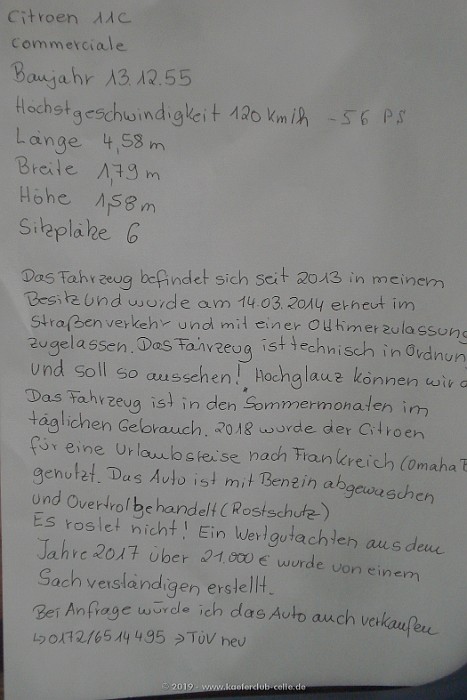 Citroen 11C
Commerciale
Baujahr 13.12.55
Höchstgeschwindigkeit 120 km/h - 56 PS
Länge 4,58 m
Breite 1,79 m
Höhe 1,58 m
Sitzplätze 6
Das Fahrzeug befindet sich seit 2013 in meinem
Besitz und wurde am 14.03.2014 erneut im
Straßenverkehr und mit einer Oldtimerzulassung
zugelassen. Das Fahrzeug ist technisch in Ordnun
und soll so aussehen! Hochglanz können wir a
Das Fahrzeug ist in den Sommermonaten im
täglichen Gebrauch. 2018 wurde der Citroen
für eine Urlaubsreise nach Frankreich (Omaha B
genutzt. Das Auto ist mit Benzin abgewaschen
und Overtrol behandelt (Rostschutz)
Es rostet nicht! Ein Wertgutachten aus dem
Jahre 2017 über 21.000 € wurde von einem
Sachverständigen erstellt.
Bei Anfrage würde ich das Auto auch verkaufen
↳ 0172/6514495 → TÜV neu
© 2019 - www.kaeferclub-celle.de